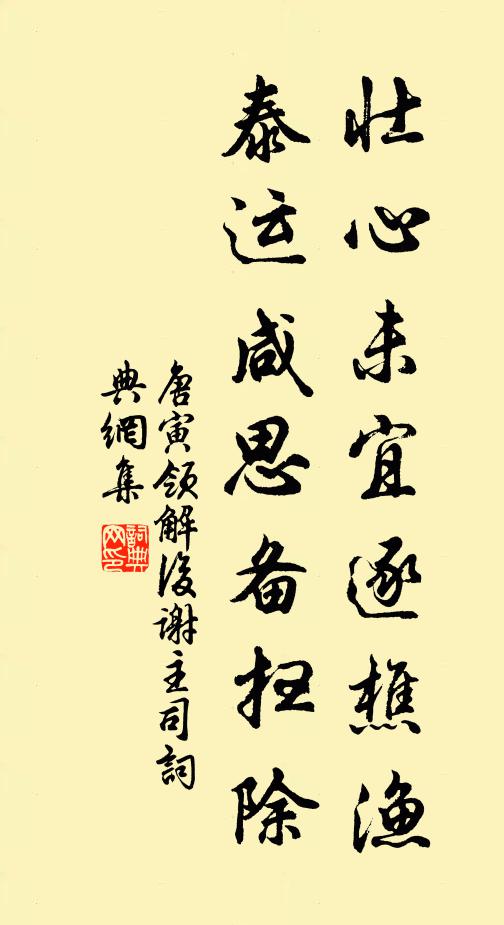 壮心未宜逐樵渔
泰运咸思备扫除
唐寅领解後謝主司詞
典網集
詞典
网印